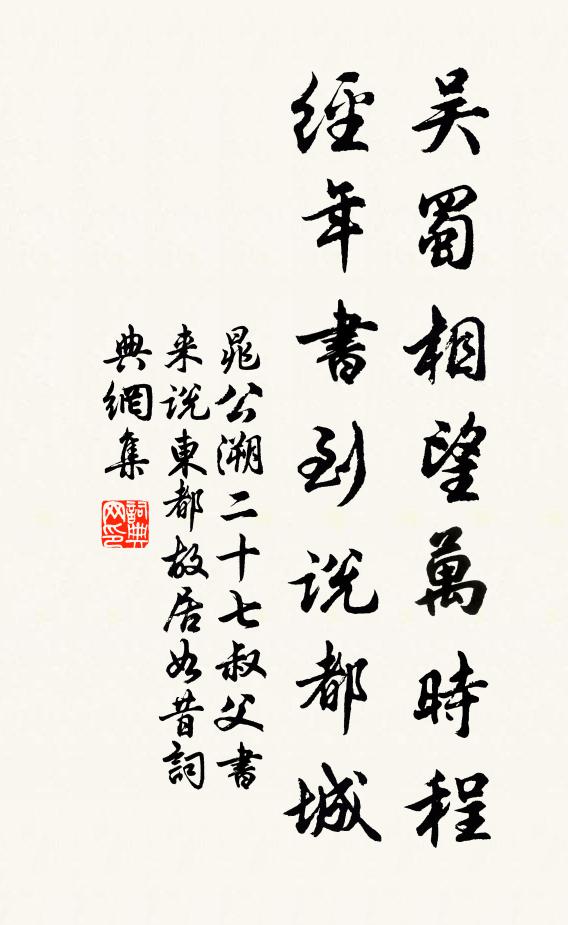 吴蜀相望萬時程
經年書到説都城
晁公溯二十七叔父書
来説東都故居如昔詞
典網集
詞典
网印